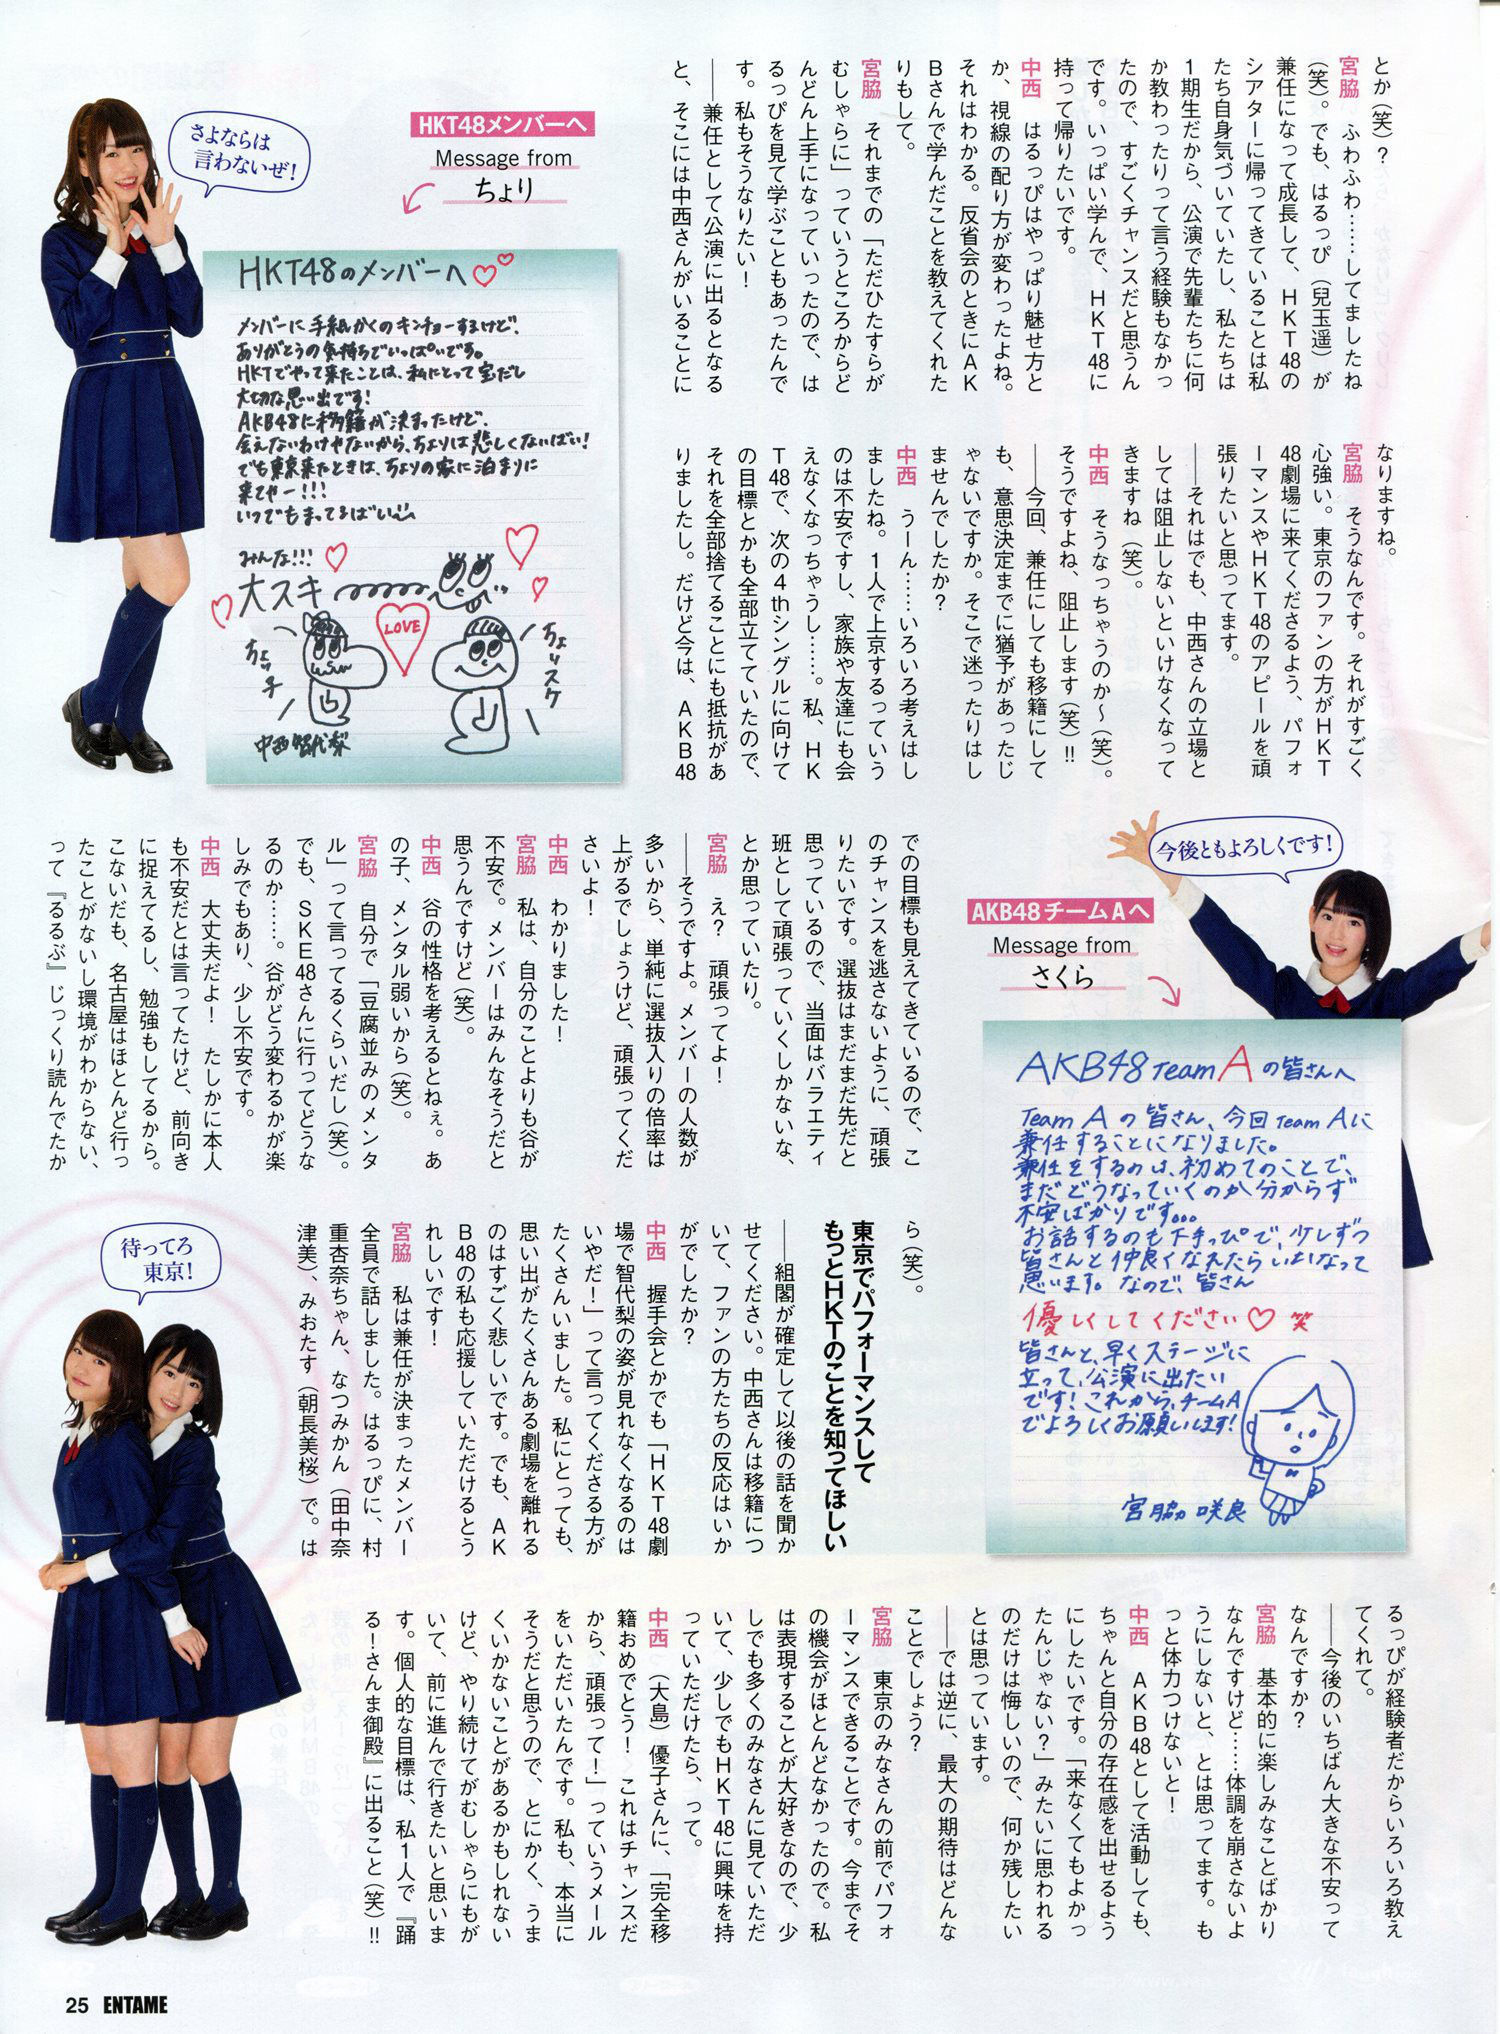 とか（笑）？
宮脇　ふわふわ……してましたね
（笑）。でも、はるっぴ（兒玉遥）が
兼任になって成長して、ＨＫＴ48の
シアターに帰ってきていることは私
たち自身気づいていたし、私たちは
１期生だから、公演で先輩たちに何
か教わったりって言う経験もなかっ
たので、すごくチャンスだと思うん
です。いっぱい学んで、ＨＫＴ48に
持って帰りたいです。
中西　はるっぴはやっぱり魅せ方と
か、視線の配り方が変わったよね。
それはわかる。反省会のときにＡＫ
Ｂさんで学んだことを教えてくれた
りもして。
宮脇　それまでの「ただひたすらが
むしゃらに」っていうところからど
んどん上手になっていったので、は
るっぴを見て学ぶこともあったんで
す。私もそうなりたい！
――兼任として公演に出るとなる
と、そこには中西さんがいることに
なりますね。
宮脇　そうなんです。それがすごく
心強い。東京のファンの方がＨＫＴ
48劇場に来てくださるよう、パフォ
ーマンスやＨＫＴ48のアピールを頑
張りたいと思ってます。
――それはでも、中西さんの立場と
しては阻止しないといけなくなって
きますね（笑）。
中西　そうなっちゃうのか〜（笑）。
そうですよね、阻止します（笑）!!
――今回、兼任にしても移籍にして
も、意思決定までに猶予があったじ
ゃないですか。そこで迷ったりはし
ませんでしたか？
中西　うーん……いろいろ考えはし
ましたね。１人で上京するっていう
のは不安ですし、家族や友達にも会
えなくなっちゃうし……。私、ＨＫ
Ｔ48で、次の４thシングルに向けて
の目標とかも全部立てていたので、
それを全部捨てることにも抵抗があ
りましたし。だけど今は、ＡＫＢ48
での目標も見えてきているので、こ
のチャンスを逃さないように、頑張
りたいです。選抜はまだまだ先だと
思っているので、当面はバラエティ
班として頑張っていくしかないな、
とか思っていたり。
宮脇　え？　頑張ってよ！
――そうですよ。メンバーの人数が
多いから、単純に選抜入りの倍率は
上がるでしょうけど、頑張ってくだ
さいよ！
中西　わかりました！
宮脇　私は、自分のことよりも谷が
不安で。メンバーはみんなそうだと
思うんですけど（笑）。
中西　谷の性格を考えるとねぇ。あ
の子、メンタル弱いから（笑）。
宮脇　自分で「豆腐並みのメンタ
ル」って言ってるくらいだし（笑）。
でも、ＳＫＥ48さんに行ってどうな
るのか……。谷がどう変わるかが楽
しみでもあり、少し不安です。
中西　大丈夫だよ！　たしかに本人
も不安だとは言ってたけど、前向き
に捉えてるし、勉強もしてるから。
こないだも、名古屋はほとんど行っ
たことがないし環境がわからない、
って『るるぶ』じっくり読んでたか
ら（笑）。
東京でパフォーマンスして
もっとＨＫＴのことを知ってほしい
――組閣が確定して以後の話を聞か
せてください。中西さんは移籍につ
いて、ファンの方たちの反応はいか
がでしたか？
中西　握手会とかでも「ＨＫＴ48劇
場で智代梨の姿が見れなくなるのは
いやだ！」って言ってくださる方が
たくさんいました。私にとっても、
思い出がたくさんある劇場を離れる
のはすごく悲しいです。でも、ＡＫ
Ｂ48の私も応援していただけるとう
れしいです！
宮脇　私は兼任が決まったメンバー
全員で話しました。はるっぴに、村
重杏奈ちゃん、なつみかん（田中奈
津美）、みおたす（朝長美桜）で。は
るっぴが経験者だからいろいろ教え
てくれて。
――今後のいちばん大きな不安って
なんですか？
宮脇　基本的に楽しみなことばかり
なんですけど……体調を崩さないよ
うにしないと、とは思ってます。も
っと体力つけないと！
中西　ＡＫＢ48として活動しても、
ちゃんと自分の存在感を出せるよう
にしたいです。「来なくてもよかっ
たんじゃない？」みたいに思われる
のだけは悔しいので、何か残したい
とは思っています。
――では逆に、最大の期待はどんな
ことでしょう？
宮脇　東京のみなさんの前でパフォ
ーマンスできることです。今までそ
の機会がほとんどなかったので。私
は表現することが大好きなので、少
しでも多くのみなさんに見ていただ
いて、少しでもＨＫＴ48に興味を持
っていただけたら、って。
中西　（大島）優子さんに、「完全移
籍おめでとう！　これはチャンスだ
から、頑張って！」っていうメール
をいただいたんです。私も、本当に
そうだと思うので、とにかく、うま
くいかないことがあるかもしれない
けど、やり続けてがむしゃらにもが
いて、前に進んで行きたいと思いま
す。個人的な目標は、私１人で『踊
る！さんま御殿』に出ること（笑）!!
さよならは
言わないぜ！
HKT48メンバーへ
Message from
ちょり
HKT48のメンバーへ♡♡
メンバーに手紙かくのキンチョーするけど、
ありがとうの気持ちでいっぱいです。
HKTでやって来たことは、私にとって宝だし
大切な思い出です！
AKB48に移籍が決まったけど、
会えないわけやないから、ちょりは悲しくないばい！
でも東京来たときは、ちょりの家に泊まりに
来てやー!!!
いつでもまってるばい
みんな!!!
大スキ
LOVE
ちょっ子
ちょリスケ
中西智代梨
今後ともよろしくです！
AKB48チームAへ
Message from
さくら
AKB48 Team Aの皆さんへ
Team Aの皆さん、今回Team Aに
兼任することになりました。
兼任をするのは、初めてのことで、
まだどうなっていくのか分からず
不安ばかりです。。。
お話するのも下手っぴで、少しずつ
皆さんと仲良くなれたらいいなって
思います。なので、皆さん
優しくしてください♡笑
皆さんと、早くステージに
立って、公演に出たい
です！これから、チームA
でよろしくお願いします！
宮脇咲良
待ってろ
東京！
25 ENTAME